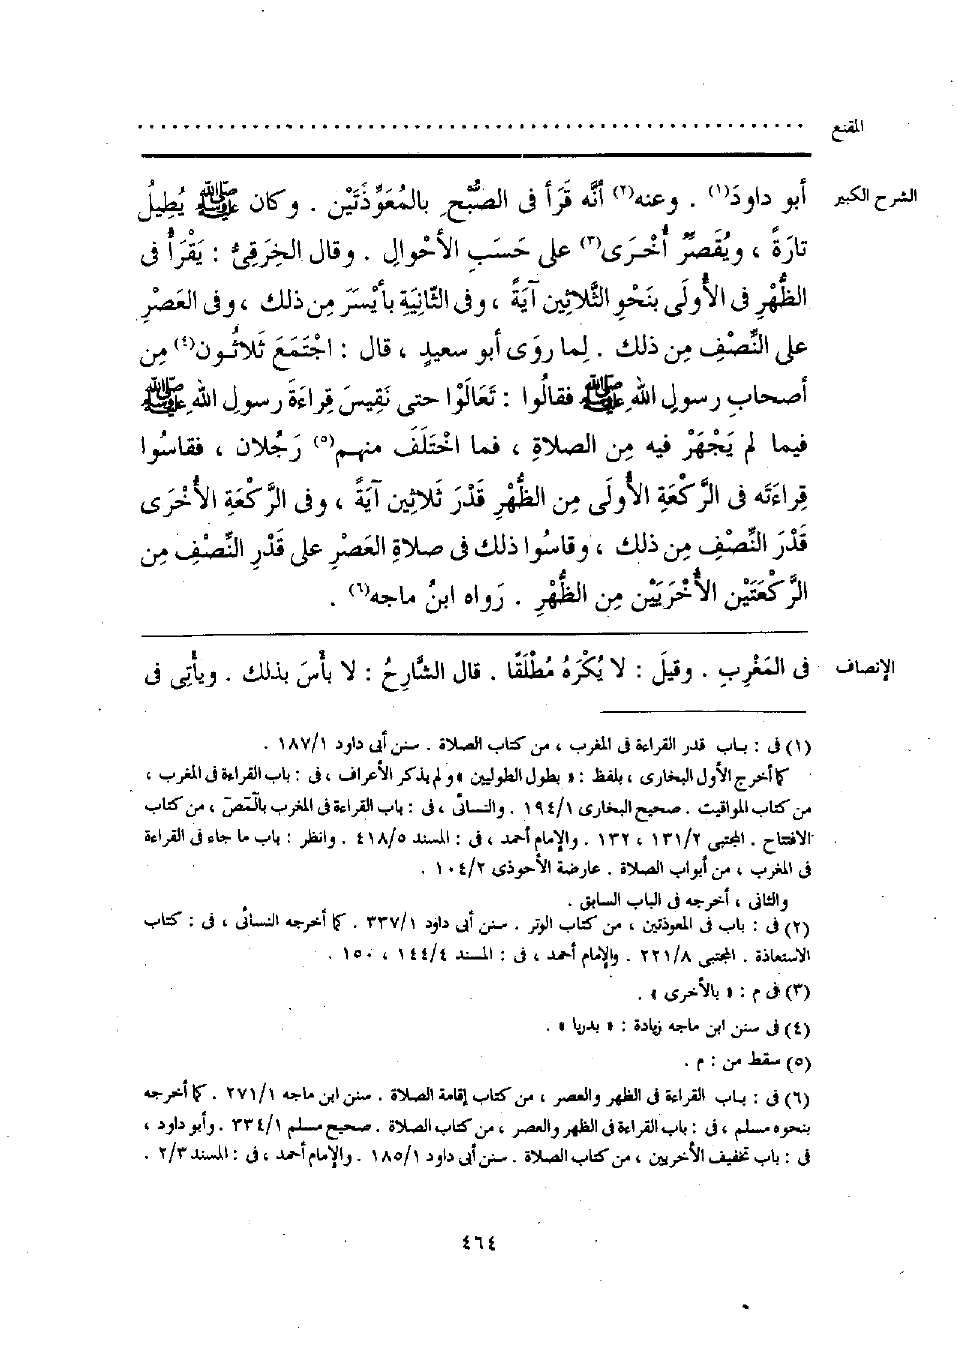 المقنع
الشرح الكبير أبو داودَ(١) . وعنه(٢) أنَّه قَرَأ فى الصُّبْحِ بالمُعَوِّذَتَيْن . وكان ﷺ يُطِيلُ
تارَةً ، ويُقَصِّرُ أُخْرَى(٣) على حَسَبِ الأحْوالِ . وقال الخِرَقِىُّ : يَقْرَأُ فى
الظُّهْرِ فى الأُولَى بنَحْوِ الثَّلاثِين آيَةً ، وفى الثّانِيَةِ بأيْسَرَ مِن ذلك ، وفى العَصْرِ
على النِّصْفِ مِن ذلك . لِما روَى أبو سعيدٍ ، قال : اجْتَمَعَ ثَلاثُون(٤) مِن
أصحابِ رسولِ اللهِ ﷺ فقالُوا : تَعَالَوْا حتى نَقِيسَ قِراءَةَ رسولِ اللهِ ﷺ
فيما لم يَجْهَرْ فيه مِن الصلاةِ ، فما اخْتَلَفَ منهم(٥) رَجُلان ، فقاسُوا
قِراءَتَه فى الرَّكْعَةِ الأُولَى مِن الظُّهْرِ قَدْرَ ثَلاثِين آيَةً ، وفى الرَّكْعَةِ الأُخْرَى
قَدْرَ النِّصْفِ مِن ذلك ، وقاسُوا ذلك فى صلاةِ العَصْرِ على قَدْرِ النِّصْفِ مِن
الرَّكْعَتَيْن الأُخْرَيَيْن مِن الظُّهْرِ . رَواه ابنُ ماجه(٦) .
الإنصاف فى المَغْرِبِ . وقيلَ : لا يُكْرَهُ مُطْلَقًا . قال الشَّارِحُ : لا بأْسَ بذلك . ويأْتِى فى
(١) فى : باب قدر القراءة فى المغرب ، من كتاب الصلاة . سنن أبى داود ١/ ١٨٧ .
كما أخرج الأول البخارى ، بلفظ : « بطول الطوليين » ولم يذكر الأعراف ، فى : باب القراءة فى المغرب ،
من كتاب المواقيت . صحيح البخارى ١/ ١٩٤ . والنسائى ، فى : باب القراءة فى المغرب بالمص ، من كتاب
الافتتاح . المجتبى ٢/ ١٣١ ، ١٣٢ . والإمام أحمد ، فى : المسند ٥/ ٤١٨ . وانظر : باب ما جاء فى القراءة
فى المغرب ، من أبواب الصلاة . عارضة الأحوذى ٢/ ١٠٤ .
والثانى ، أخرجه فى الباب السابق .
(٢) فى : باب فى المعوذتين ، من كتاب الوتر . سنن أبى داود ١/ ٣٣٧ . كما أخرجه النسائى ، فى : كتاب
الاستعاذة . المجتبى ٨/ ٢٢١ . والإمام أحمد ، فى : المسند ٤/ ١٤٤ ، ١٥٠ .
(٣) فى م : « بالأخرى » .
(٤) فى سنن ابن ماجه زيادة : « بدريا » .
(٥) سقط من : م .
(٦) فى : باب القراءة فى الظهر والعصر ، من كتاب إقامة الصلاة . سنن ابن ماجه ١/ ٢٧١ . كما أخرجه
بنحوه مسلم ، فى : باب القراءة فى الظهر والعصر ، من كتاب الصلاة . صحيح مسلم ١/ ٣٣٤ . وأبو داود ،
فى : باب تخفيف الأخريين ، من كتاب الصلاة . سنن أبى داود ١/ ١٨٥ . والإمام أحمد ، فى : المسند ٣/ ٢ .
٤٦٤